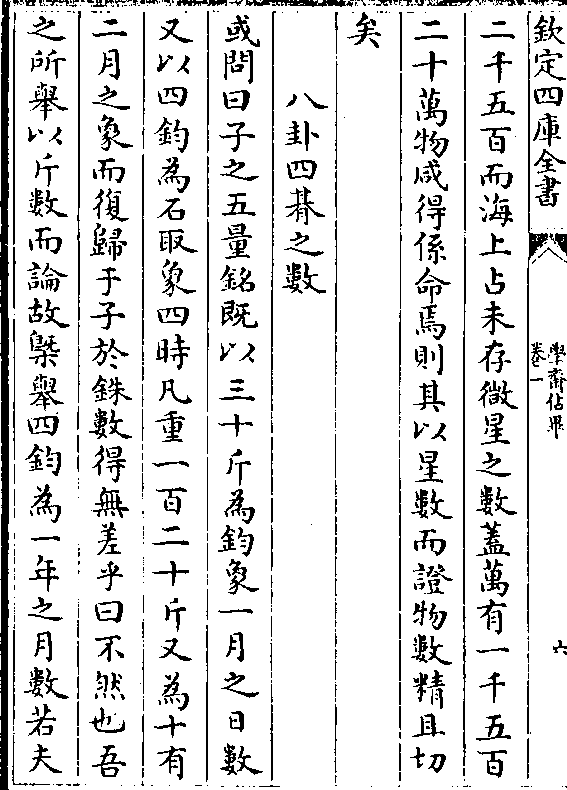 欽定四庫全書
學齋佔畢
卷一
六
二千五百而海上占未存微星之數蓋萬有一千五百
二十萬物咸得係命焉則其以星數而證物數精且切
矣
八卦四朞之數
或問曰子之五量銘既以三十斤為鈞象一月之日數
又以四鈞為石取象四時凡重一百二十斤又為十有
二月之象而復歸于子於銖數得無差乎曰不然也吾
之所舉以斤數而論故槩舉四鈞為一年之月數若夫